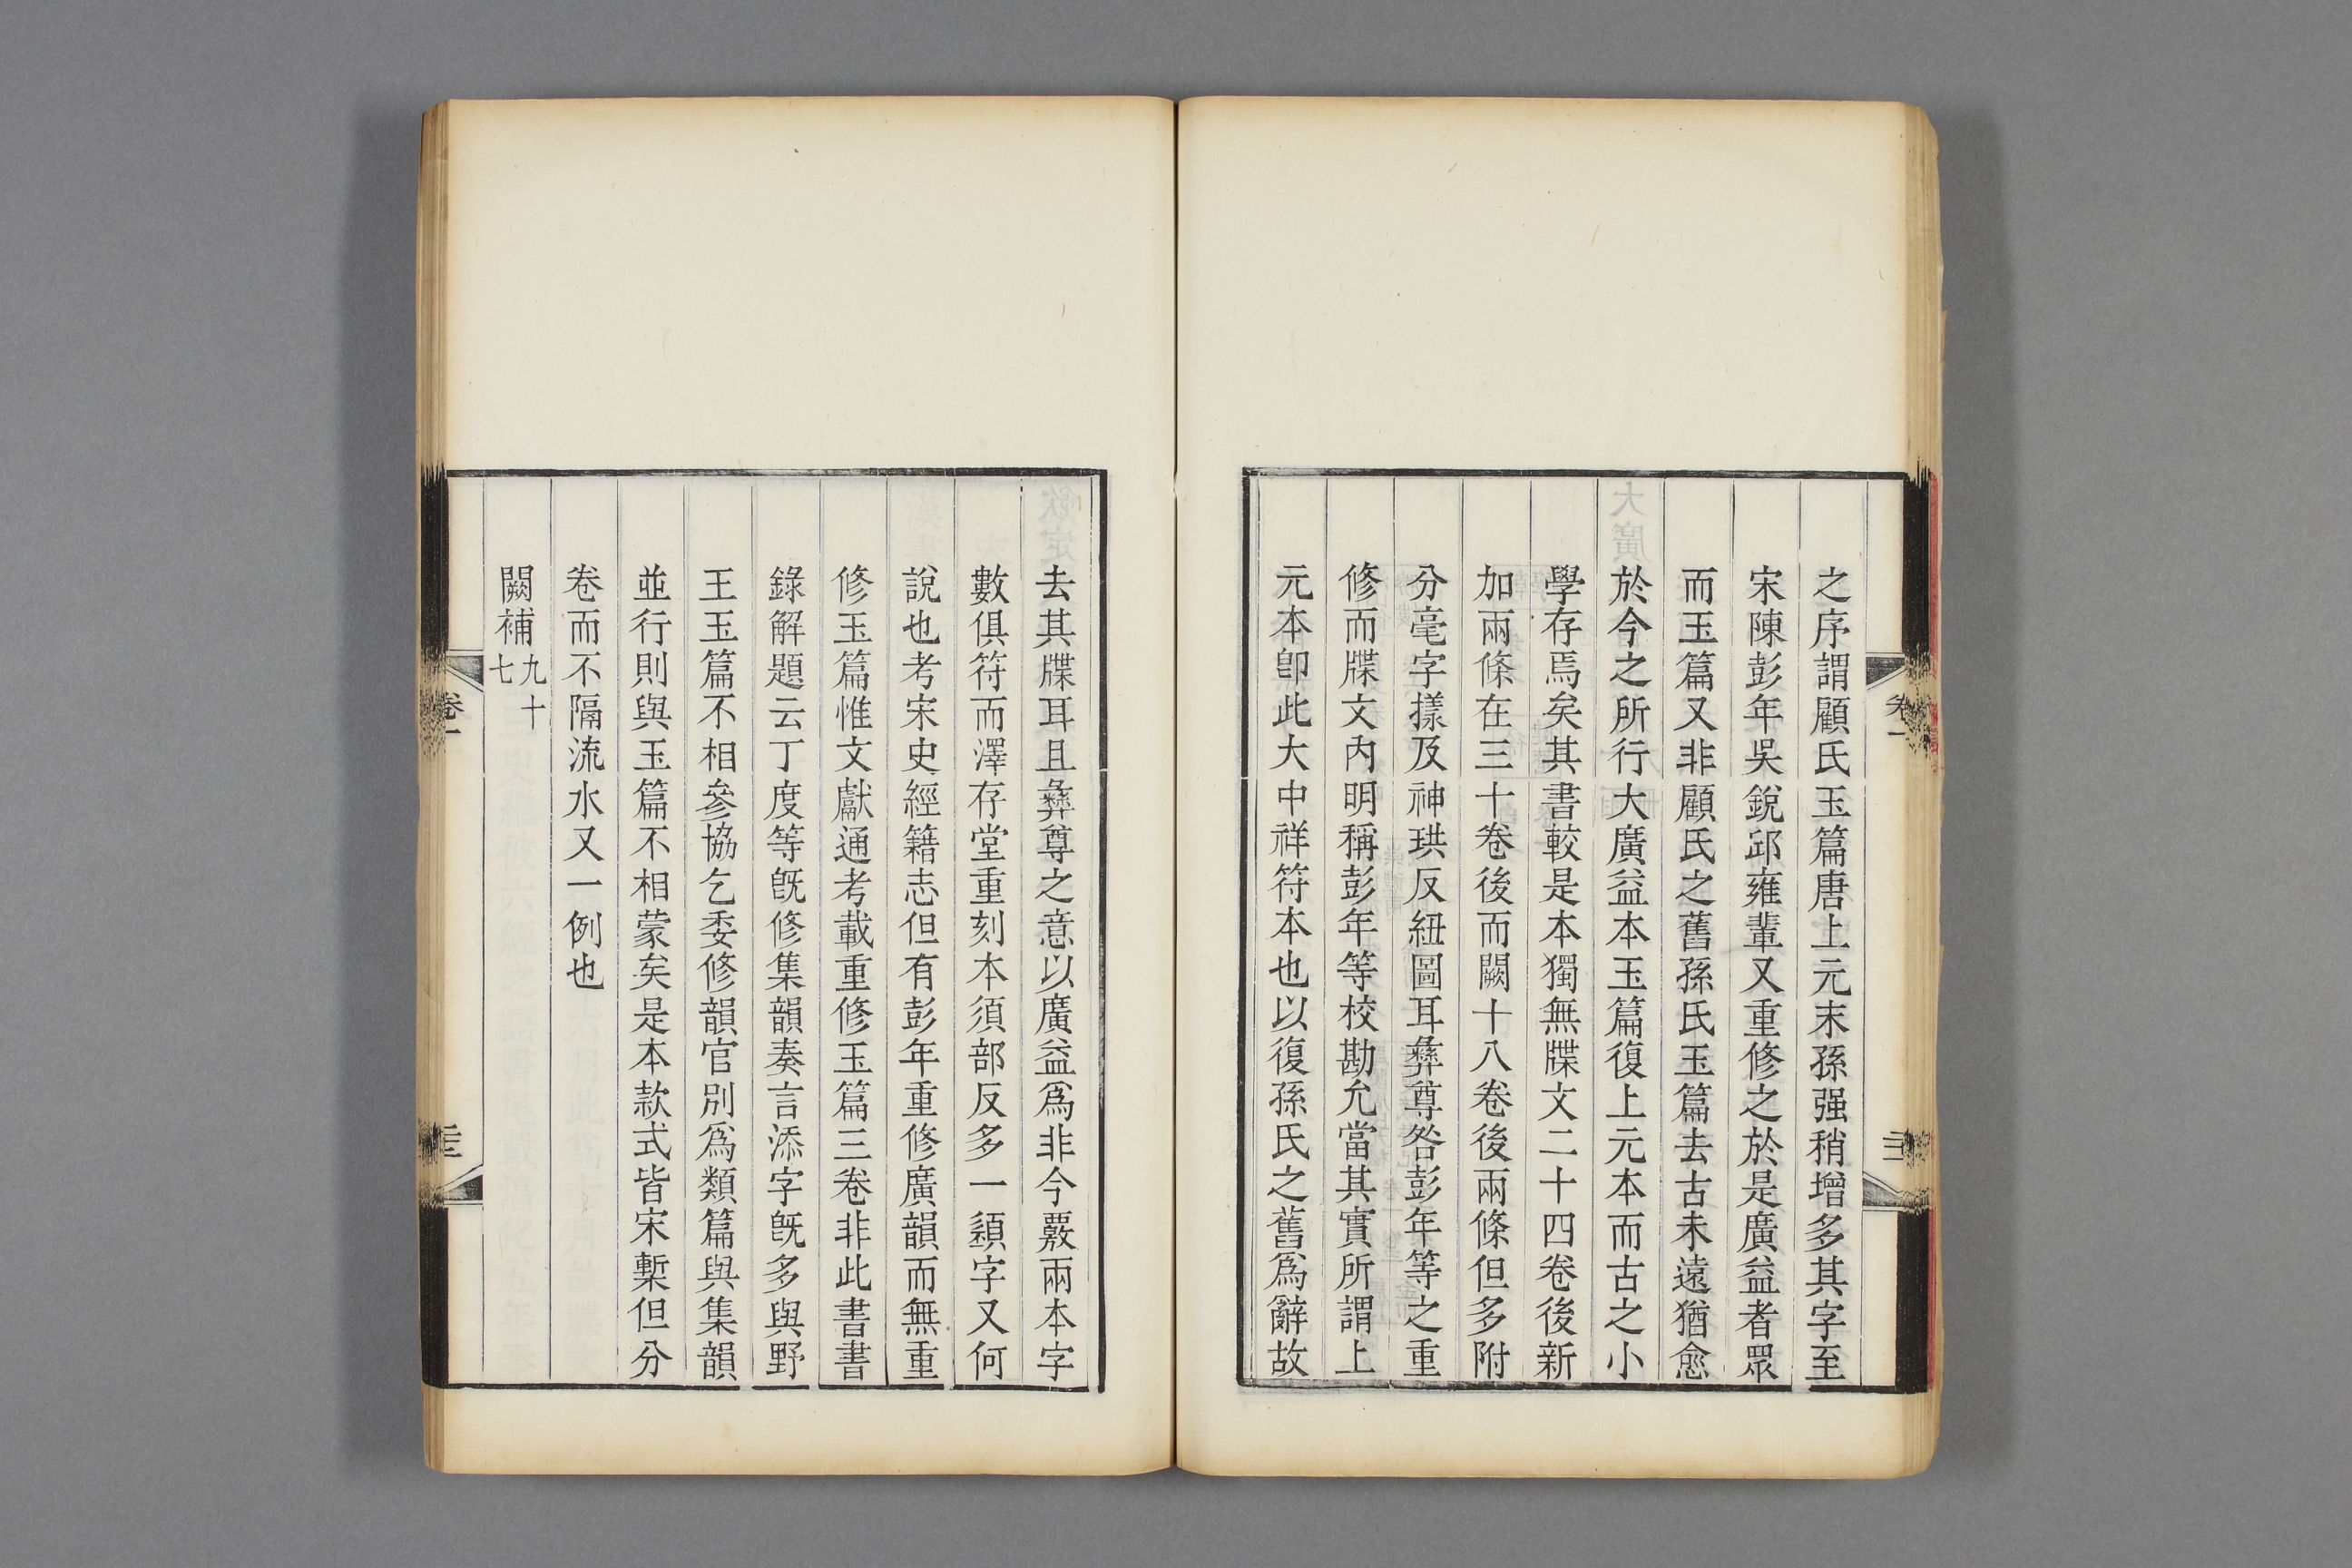 之序謂顧氏玉篇唐上元末孫强稍增多其字至
宋陳彭年吳銳邱雍輩又重修之於是廣益者眾
而玉篇又非顧氏之舊孫氏玉篇去古未遠猶愈
於今之所行大廣益本玉篇復上元本而古之小
學存焉矣其書較是本獨無牒文二十四卷後新
加兩條在三十卷後而闕十八卷後兩條但多附
分毫字㨾及神珙反紐圖耳彝尊咎彭年等之重
修而牒文內明稱彭年等校勘允當其實所謂上
元本卽此大中祥符本也以復孫氏之舊爲辭故
去其牒耳且彝尊之意以廣益爲非今覈兩本字
數俱符而澤存堂重刻本須部反多一䫂字又何
說也考宋史經籍志但有彭年重修廣韻而無重
修玉篇惟文獻通考載重修玉篇三卷非此書書
錄解題云丁度等旣修集韻奏言添字旣多與野
王玉篇不相參協乞委修韻官別爲類篇與集韻
並行則與玉篇不相蒙矣是本款式皆宋槧但分
卷而不隔流水又一例也
闕補九十七
卷一